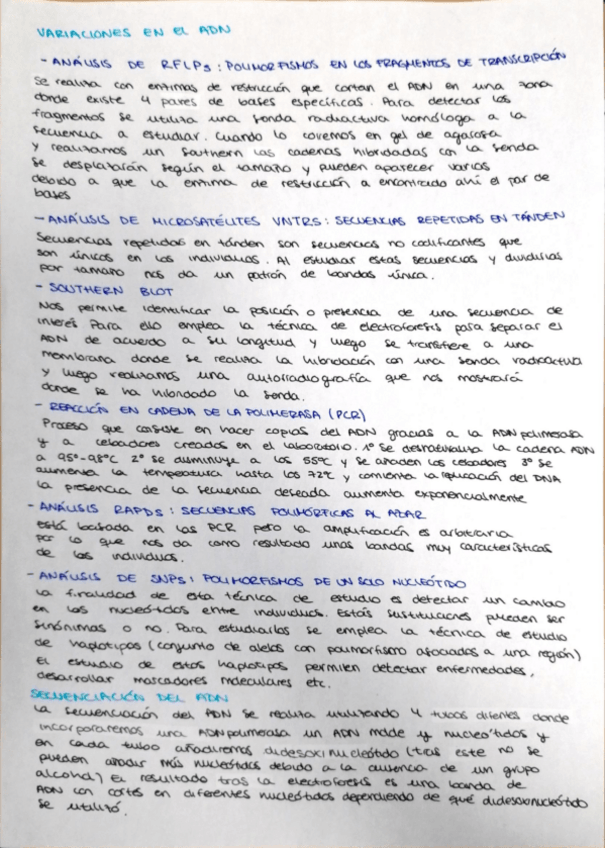 VARIACIONES EN EL ADN
- ANÁLISIS DE RFLPs : POLIMORFISMOS EN LOS FRAGMENTOS DE TRANSCRIPCIÓN
Se realiza con enzimas de restricción que cortan el ADN en una zona
donde existe 4 pares de bases específicas. Para detectar los
fragmentos se utiliza una sonda radiactiva homóloga a la
secuencia a estudiar. Cuando lo corremos en gel de agarosa
y realizamos un Southern las cadenas hibridadas con la sonda
se desplazarán según el tamaño y pueden aparecer varios
debido a que la enzima de restricción a encontrado ahí el par de
bases
- ANÁLISIS DE MICROSATÉLITES VNTRS : SECUENCIAS REPETIDAS EN TÁNDEN
Secuencias repetidas en tánden son secuencias no codificantes que
son únicas en los individuos. Al estudiar estas secuencias y dividirlas
por tamaño nos da un patrón de bandas única.
- SOUTHERN BLOT
Nos permite identificar la posición o presencia de una secuencia de
interés Para ello emplea la técnica de electroforesis para separar el
ADN de acuerdo a su longitud y luego se transfiere a una
membrana donde se realiza la hibridación con una sonda radioactiva
y luego realizamos una autorradiografía que nos mostrará
donde se ha hibridado la sonda.
- REACCIÓN EN CADENA DE LA POLIMERASA (PCR)
Proceso que consiste en hacer copias del ADN gracias a la ADN polimerasa
y a cebadores creados en el laboratorio. 1º Se desnaturaliza la cadena ADN
a 95º-98ºC 2º Se disminuye a los 55ºC y se añaden los cebadores 3º Se
aumenta la temperatura hasta los 72ºC y comienta la replicación del DNA
la presencia de la secuencia deseada aumenta exponencialmente
- ANÁLISIS RAPDs : SECUENCIAS POLIMÓRFICAS AL AZAR
Está basada en las PCR pero la amplificación es arbitraria
por lo que nos da como resultado unas bandas muy características
de los individuos.
- ANÁLISIS DE SNPs : POLIMORFISMOS DE UN SOLO NUCLEÓTIDO
La finalidad de esta técnica de estudio es detectar un cambio
en los nucleótidos entre individuos. Estas sustituciones pueden ser
sinónimas o no. Para estudiarlos se emplea la técnica de estudio
de haplotipos (conjunto de alelos con polimorfismo asociados a una región)
El estudio de estos haplotipos permiten detectar enfermedades,
desarrollar marcadores moleculares etc.
SECUENCIACIÓN DEL ADN
La secuenciación del ADN se realiza utilizando 4 tubos difentes donde
incorporaremos una ADN polimerasa un ADN molde y nucleótidos y
en cada tubo añadiremos didesoxinucleótido (tras este no se
pueden añadir más nucleótidos debido a la ausencia de un grupo
alcohol) El resultado tras la electroforesis es una banda de
ADN con cortes en diferentes nucleótidos dependiendo de qué didesoxinucleótido
se utilizó.